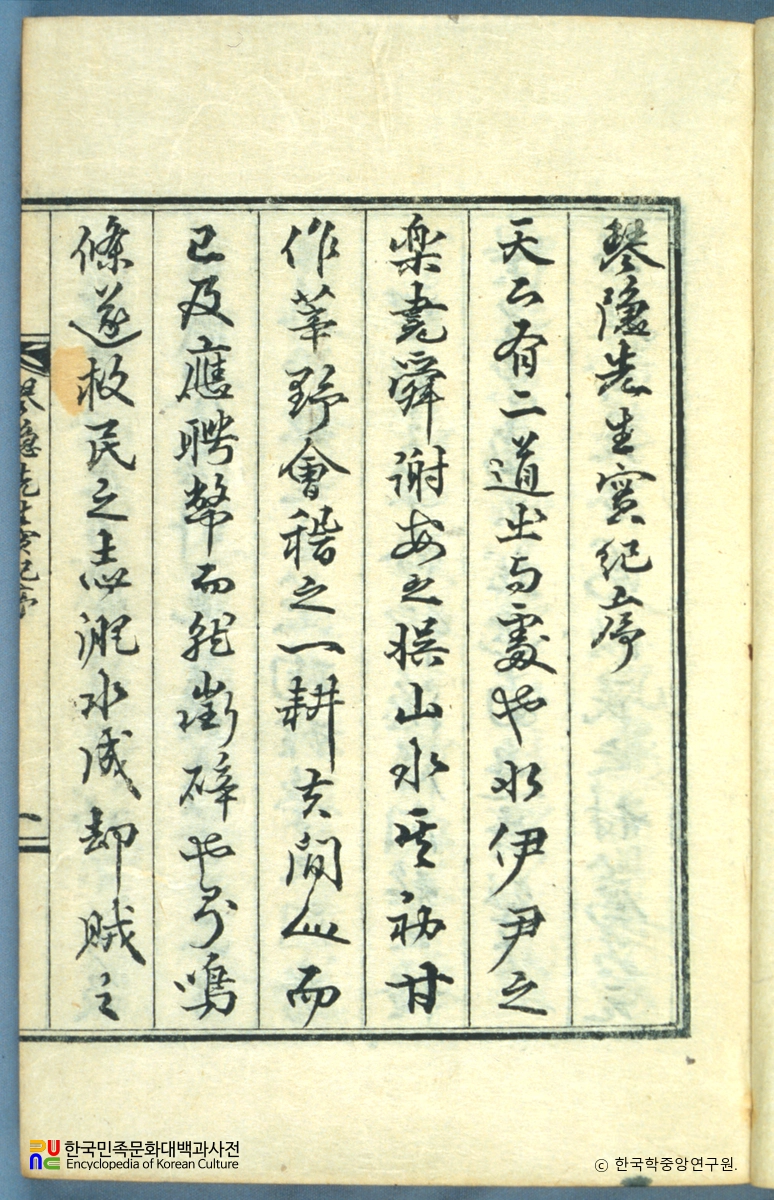 琴隱先生實紀序
天下有二道出与處也以伊尹之
楽堯舜謝安之娛山水其初甘
作莘野會稽之一耕夫閒人而
已及應聘幣而就徵辟也鳴
條遂救民之志淝水成却賊之
琴隱先生實紀序
一
한국민족문화대백과사전
Encyclopedia of Korean Culture
ⓒ 한국학중앙연구원.